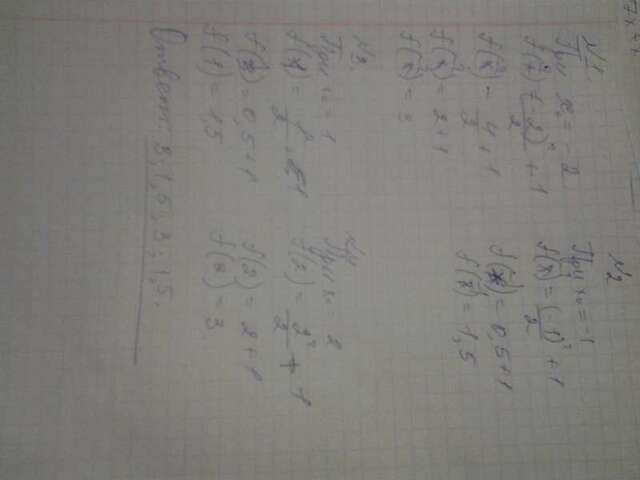 №1
При x₀ = -2
f(-2) = (-2)²/2 + 1
f(-2) = 4/2 + 1
f(-2) = 2 + 1
f(-2) = 3
№2
При x₀ = -1
f(-1) = (-1)²/2 + 1
f(-1) = 0,5 + 1
f(-1) = 1,5
№3
При x₀ = 1
f(1) = 1²/2 + 1
f(1) = 0,5 + 1
f(1) = 1,5
№4
При x₀ = 2
f(2) = 2²/2 + 1
f(2) = 2 + 1
f(2) = 3
Ответ: 3; 1,5; 3; 1,5.